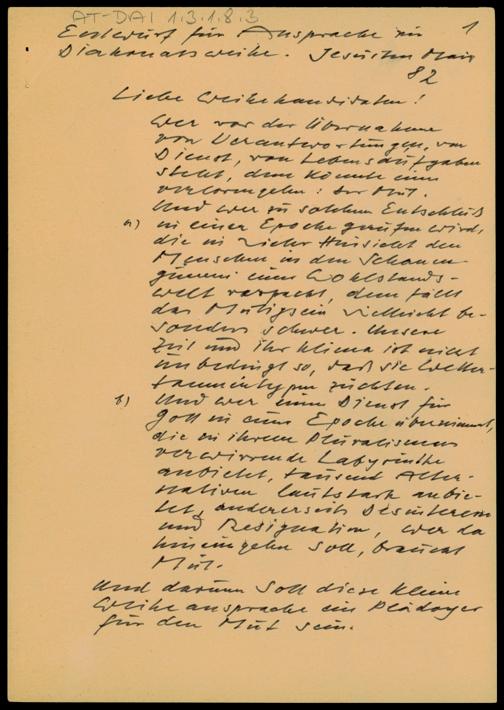 AT-DAI 1.3.1.8.3
1
Entwurf für Ansprache zur
Diakonatsweihe. Jesuiten Mai
82
Liebe Weihekandidaten!
Wer vor der Übernahme
von Verantwortungen, von
Dienst, von Lebensaufgaben
steht, dem könnte eins
verlorengehen: der Mut.
Und wer zu solchem Entschluß
a) in einer Epoche gerufen wird,
die in vieler Hinsicht den
Menschen in den Schaum-
gummi einer Wohlstands-
welt verpackt, dem fällt
das Mutigsein vielleicht be-
sonders schwer. Unsere
Zeit und ihr Klima ist nicht
unbedingt so, daß sie Wetter-
tannentypen züchten.
b) Und wer einen Dienst für
Gott in einer Epoche übernimmt,
die in ihrem Pluralismus
verwirrende Labyrinthe
anbietet, tausend Alter-
nativen lautstark anbie-
tet, andererseits Desinteresse
und Resignation, wer da
hineingehn soll, braucht
Mut.
Und darum soll diese kleine
Weiheansprache ein Plädoyer
für den Mut sein.